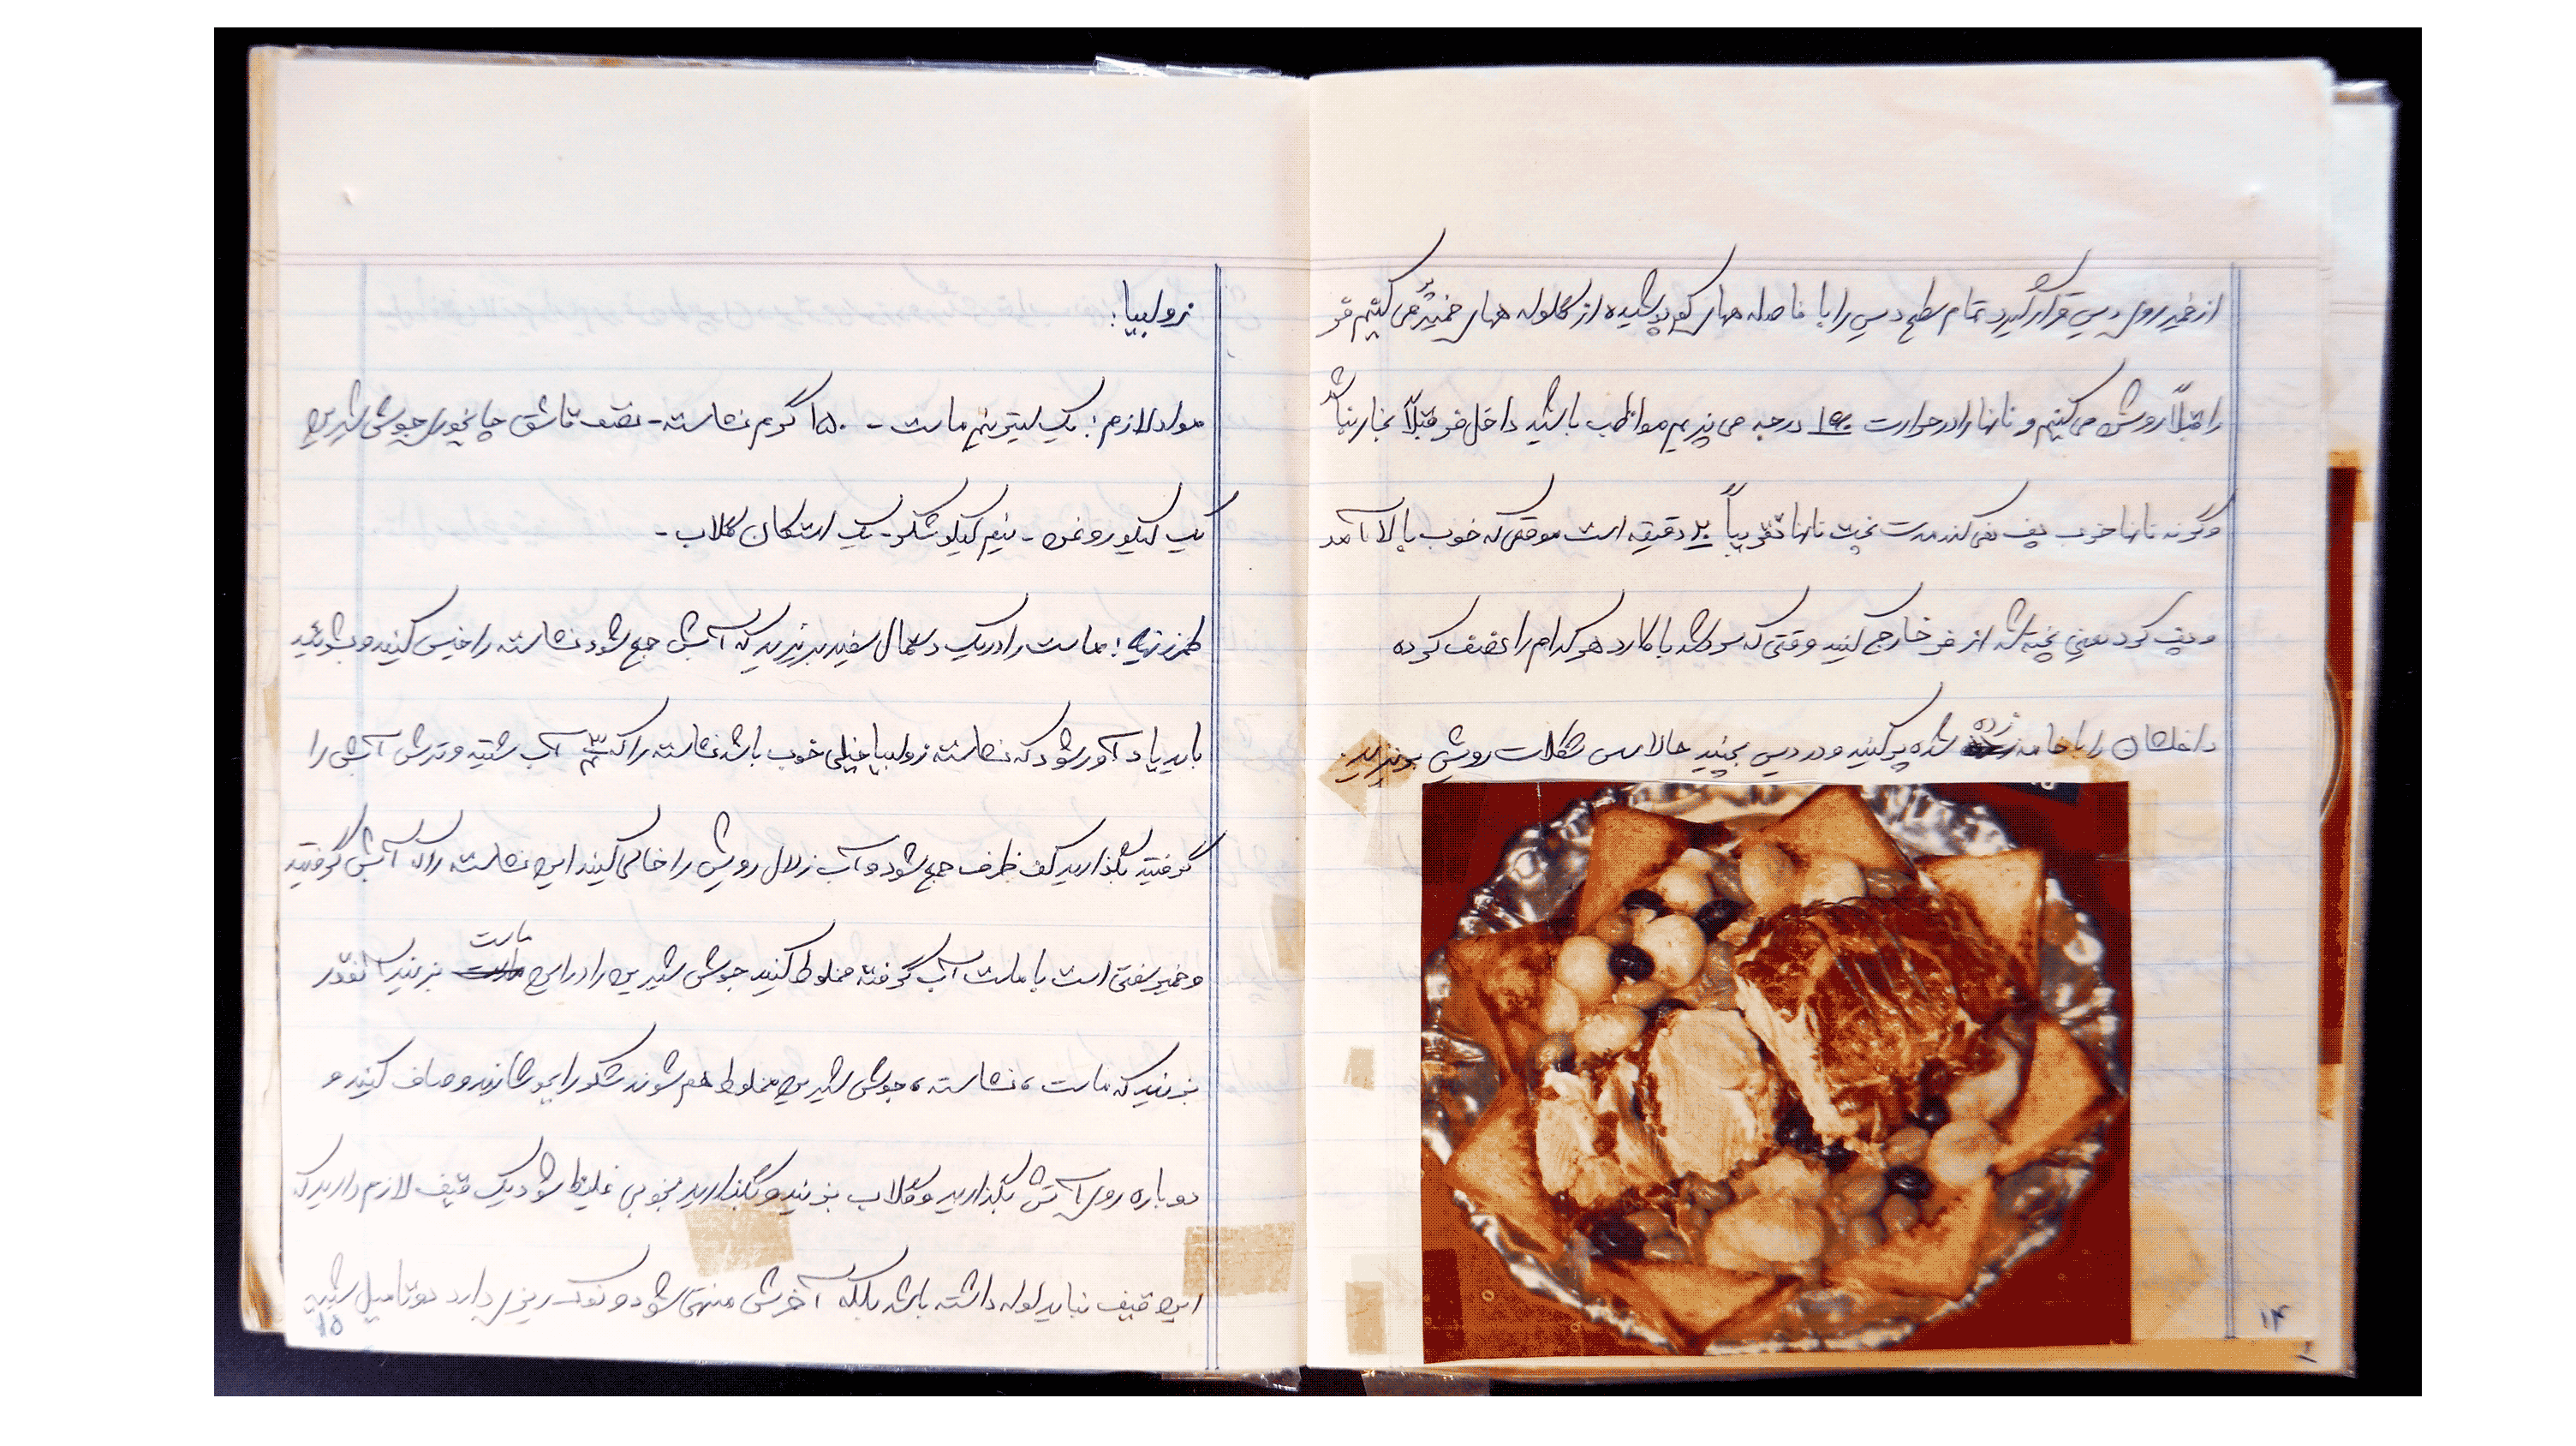 از خمیر روی دیس قرار گیرد تمام سطح دیس را با فاصله های کم پوشیده از گلوله های خمیر پر می کنیم فر
را قبلاً روشن می کنیم و نانها را در حرارت درجه می پزیم مواظب باشید داخل فر قبلاً بخار نباشد
وگرنه نانها خوب پف نمی کند مدت پخت نانها تقریباً ۲۰ دقیقه است موقعی که خوب بالا آمد
و پف کرد یعنی پخته شد از فر خارج کنید وقتی که سرد شد با کارد هر کدام را نصف کرده
داخلشان را با خامه زده شده پر کنید و در دیس بچینید حالا سس شکلات رویش بریزید
۱۴
زولبیا:
مواد لازم: یک لیتر و نیم ماست - ۱۵۰ گرم نشاسته - نصف قاشق چایخوری جوش شیرین
یک کیلو روغن - نیم کیلو شکر - یک استکان گلاب -
طرز تهیه: ماست را در یک دستمال سفید بریزید که آبش جمع شود نشاسته را خیس کنید و بشوئید
باید یادآور شود که نشاسته زولبیا خیلی خوب باشد نشاسته را که آب شتید و ترش آبش را
گرفتید بگذارید کف ظرف جمع شود و آب زلال رویش را خالی کنید این نشاسته را که آبش گرفتید
و خمیر سفتی است با ماست آب گرفته مخلوط کنید جوش شیرین را در این ماست بزنید آنقدر
بزنید که ماست، نشاسته، جوش شیرین مخلوط هم شوند شکر را بجوشانید و صاف کنید و
دوباره روی آتش بگذارید و گلاب بزنید و بگذارید بخوبی غلیظ شود یک قیف لازم دارید که
این قیف نباید لوله داشته باشد بلکه آخرش منتهی شود و نوک ریزی دارد دو تا میل
۱۵